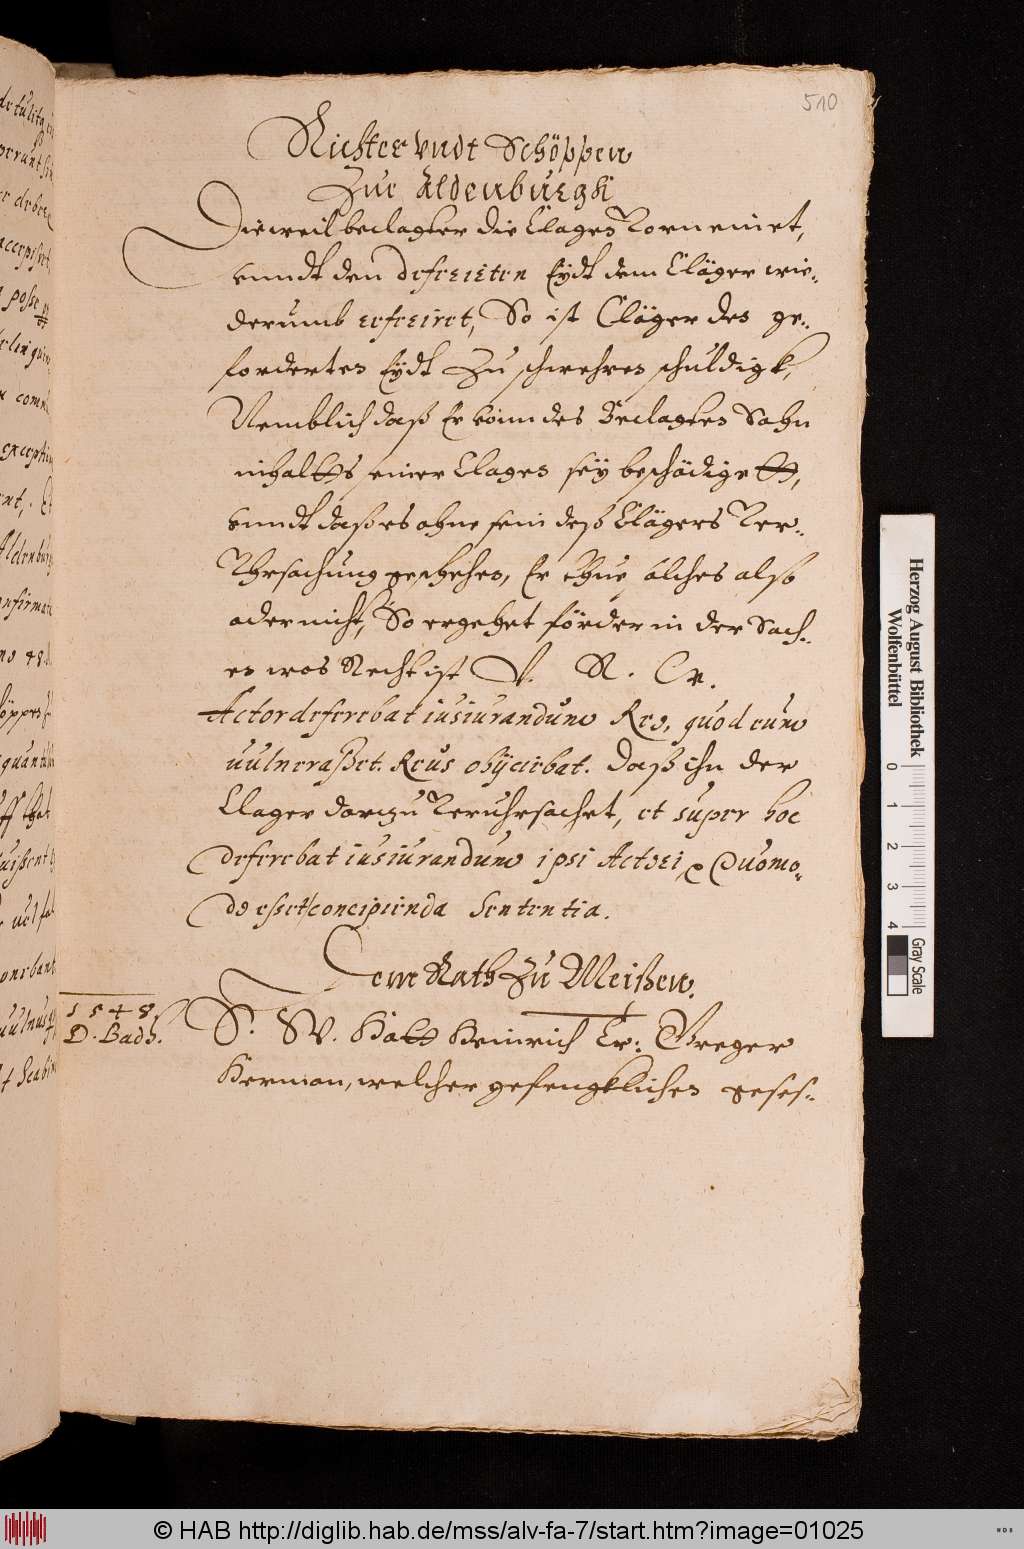 510
Richter vndt Schöppen
Zur Aldenburgk
Dieweil beclagter die Clagen verneinet,
vnndt den deferirten Eydt dem Cläger wie-
derumb referiret, So ist Cläger den ge-
forderten Eydt Zu schwehren schuldigk,
Nemblich daß Er vonn des Beclagten Sohn
inhalts seiner Clagen sey beschädigett,
vnndt daß es ohne sein deß Clägers ver-
Vhrsachung geschehen, Er thue solches also
oder nicht, So ergehet förder in der Sach-
en was Recht ist V. R. W.
Actor deferebat iusiurandum Reo, quod eum
uulneraßet. Reus obijciebat. daß ihn der
Clager darzu veruhrsachet, et super hoc
deferebat iusiurandum ipsi Actori, Quomo-
do eßet concipienda Sententia.
Dem Rath Zu Meißen.
1548.
D. Bads.
S. W. Hatt Heinrich Greger
Herman, welcher gefengklichen geses-
Herzog August Bibliothek
Wolfenbüttel
0 1 2 3 4
Gray Scale
© HAB http://diglib.hab.de/mss/alv-fa-7/start.htm?image=01025